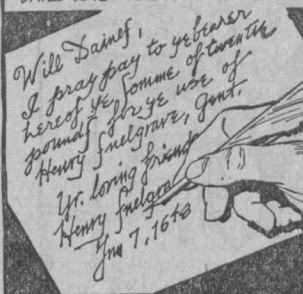 Will Daines,
I pray pay to ye bearer
hereof, ye somme of twentie
pounds for ye use of
Henry Snelgrave, Gent.
Yr. loving friend
Henry Snelgra
7, 1648